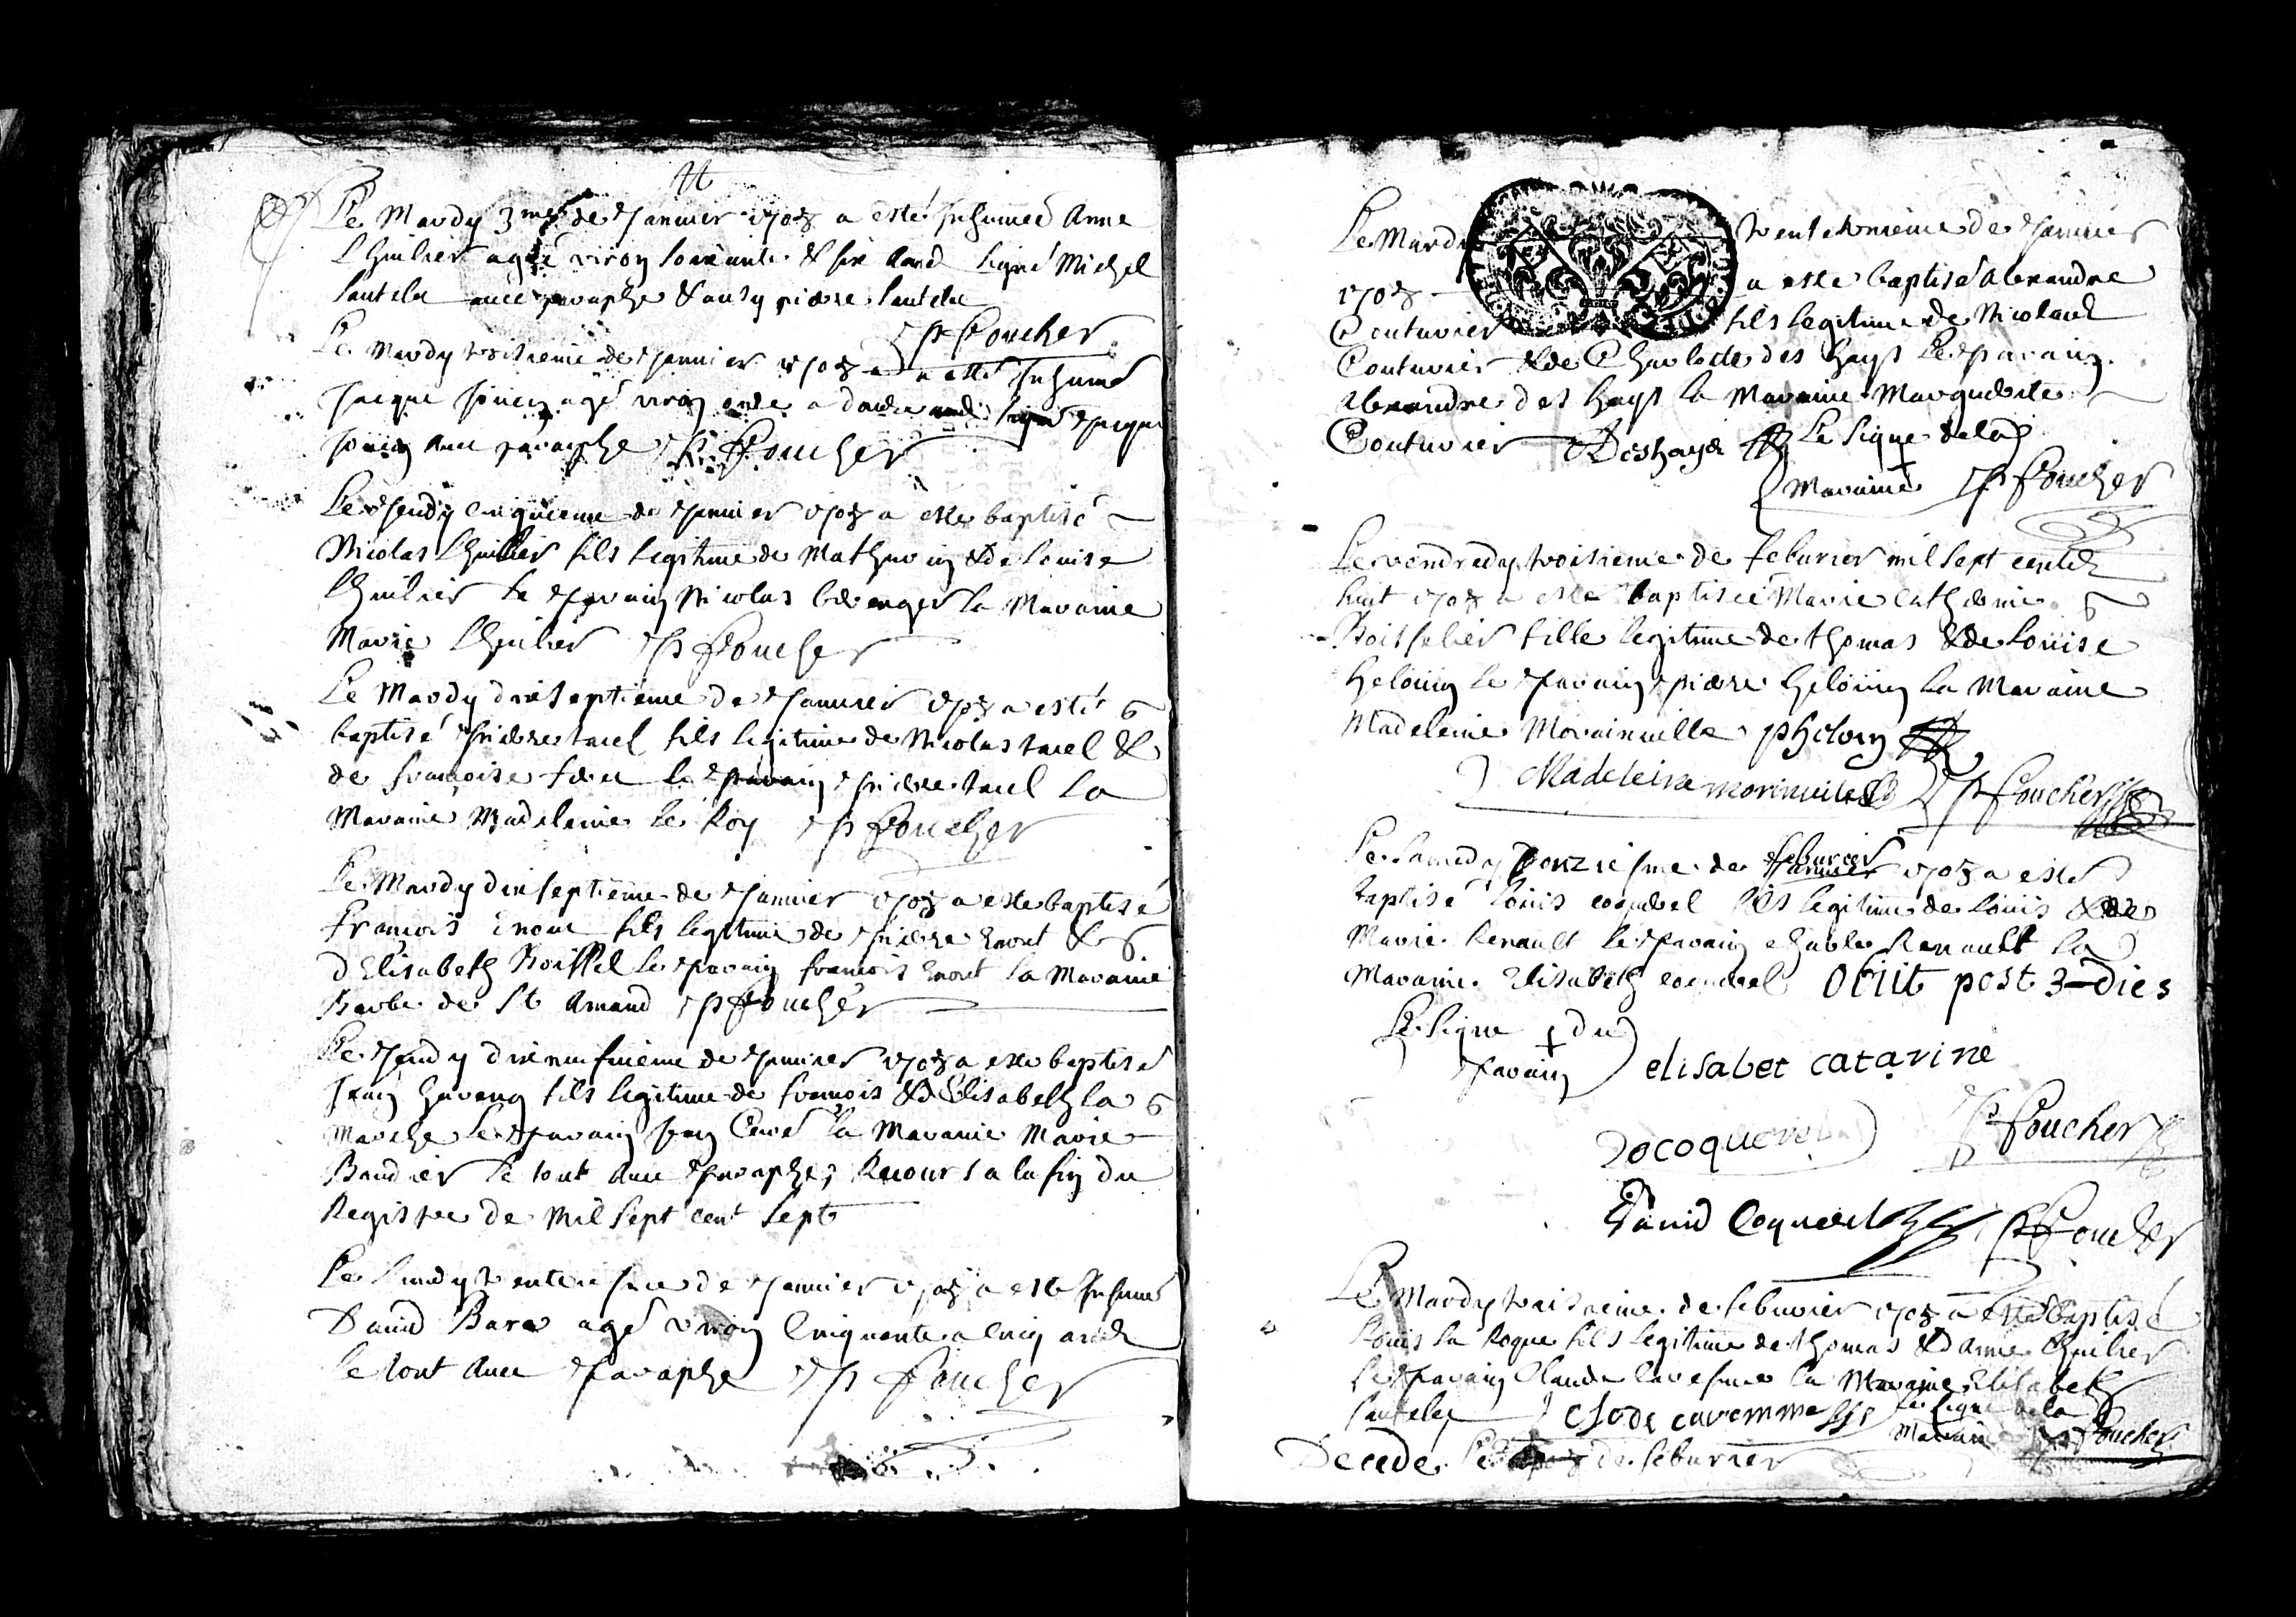 Le Mardy 3me de Janvier 1708 a esté Inhumeé Anne
Lhuilier agéé viron soixante & six ans signé Michel
Lautelu avec paraphe & ausy pierre Lautelu
P Foucher
Le Mardy troisieme de Janvier 1708 a esté Inhumé
Jacque agé viron onze a douze ans signé Jacque
avec paraphe P Foucher
Le Jeudy cinquieme de Janvier 1708 a este baptisé
Nicolas Lhuillier fils legitime de Mathurin & de Louise
Lhuilier le parain Nicolas la Maraine
Marie Lhuilier P Foucher
Le Mardy dixseptieme de Janvier 1708 a esté
baptisé pierre tarel fils legitime de Nicolas tarel &
de francoise le parain pierre tarel La
Maraine Madeleine le Roy P Foucher
Le Mardy dixseptieme de Janvier 1708 a este baptisé
francois Enout fils legitime de pierre Enout &
d'Elisabeth Boissel le parain francois Enout la Maraine
Barbe de St Amand P Foucher
Le Jeudy dixneufuieme de Janvier 1708 a este baptisé
Jean fils legitime de francois & d'Elisabeth la
Marche le parain Jean la Maraine Marie
Baudier le tout avec paraphe; Recours a la fin du
Registre de Mil sept cent sept
Le Lundy trentiesme de Janvier 1708 a este Inhumé
David Bare agé viron Cinquante a cinq ans
le tout avec paraphe P Foucher
Le Mardy trente Unieme de Janvier
1708 a este baptisé Alexandre
Couturier fils legitime de Nicolas
Couturier & de Charlotte des hays Le parain
Alexandre des hays la Maraine Marguerite
Couturier Deshays Le signe de la
Maraine P Foucher
Le vendredy troisieme de feburier mil sept cents
huit 1708 a este baptiseé Marie Catherine
Boisselier fille legitime de thomas & de Louise
helouin le parain pierre helouin La Maraine
Madeleine Morainuille phelouin
Madeleine morinuille P Foucher
Le samedy onziesme de feburier 1708 a esté
baptisé Louis coquerel fils legitime de Louis & de
Marie Renault le parain charle Renault la
Maraine Elisabeth coquerel Obiit post 3 dies
Le signe du
parain elisabet catarine
Docoquerel P Foucher
David Coquerel P Foucher
Le Mardy de feburier 1708 a esté baptisé
Louis la Roque fils legitime de thomas & d'anne Lhuilier
le parain Claude la Maraine Elisabeth
clode le signe de la
Maraine P Foucher
Decede Le de feburier